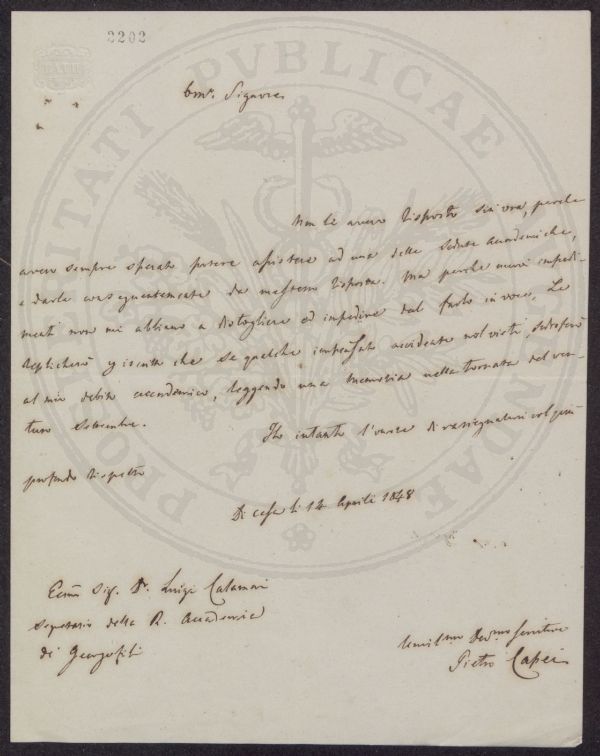 2202
PROSPERITATI PVBLICAE AVGENDAE
Signore
Non Le avevo risposto sin'ora, perchè
avevo sempre sperato potere assistere ad una delle Sedute Accademiche,
e darle conseguentemente da me stesso risposta. Ma perchè nuovi impedi-
menti non mi abbiano a distogliere ed impedire dal farlo in voce, Le
replicherò che se qualche impensato accidente nol vieti, sodisferò
al mio debito accademico, leggendo una Memoria nella tornata del ven-
turo Settembre.
Ho intanto l'onore di rassegnarmi col più
profondo rispetto
Di casa li 12 Aprile 1848
Sig. Dr. Luigi Calamai
Segretario della R. Accademia
di Georgofili
Servitore
Pietro Capei